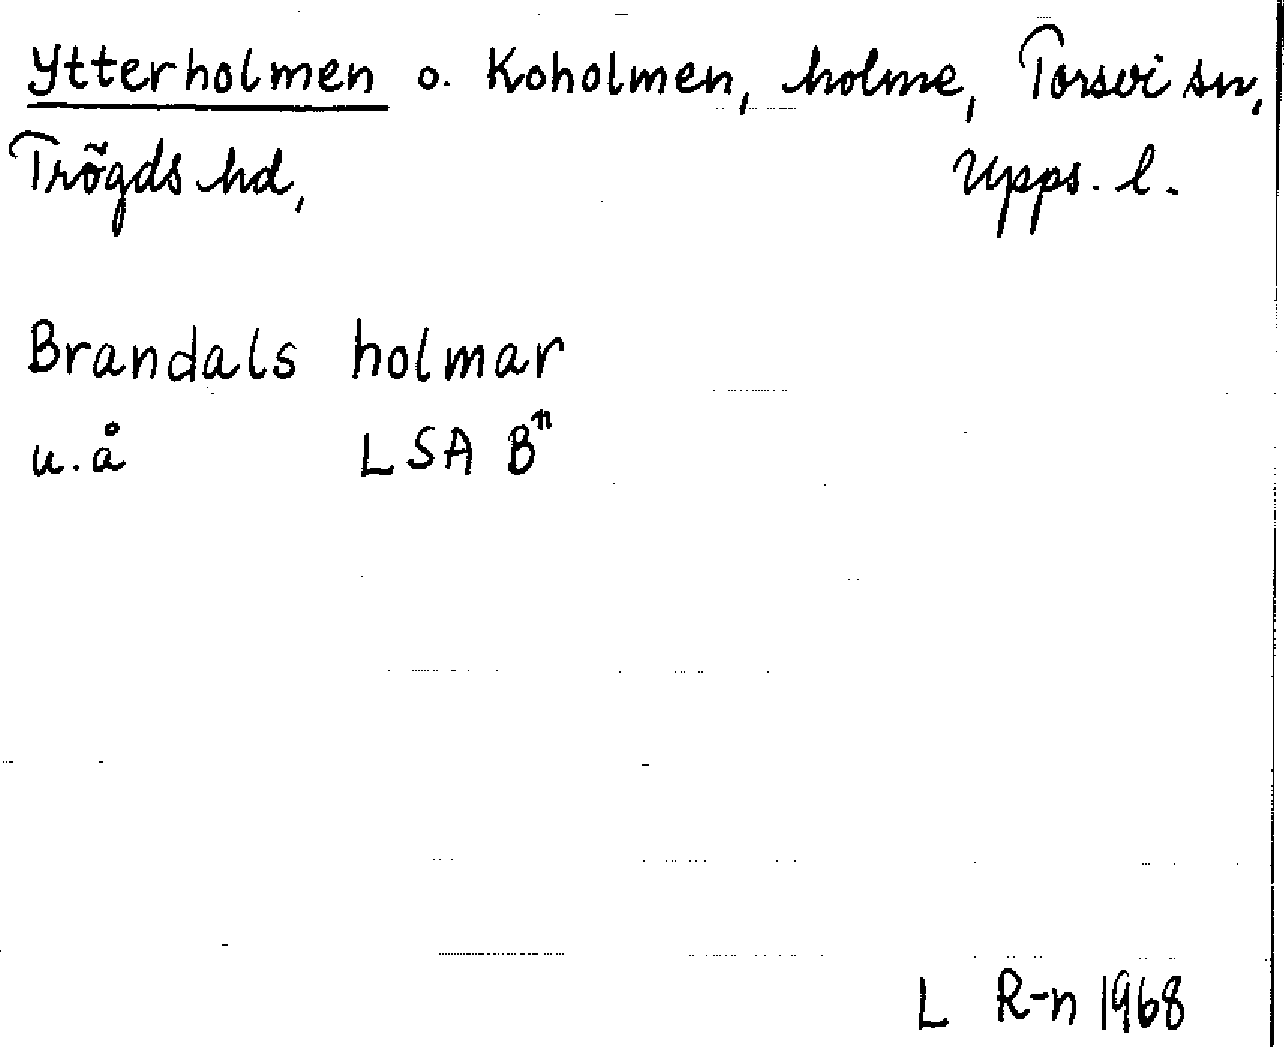 Ytterholmen o. Koholmen, holme, Torsvi sn,
Trögds hd, Upps. l.
Brandals holmar
u.å LSA Bⁿ
L R-n 1968